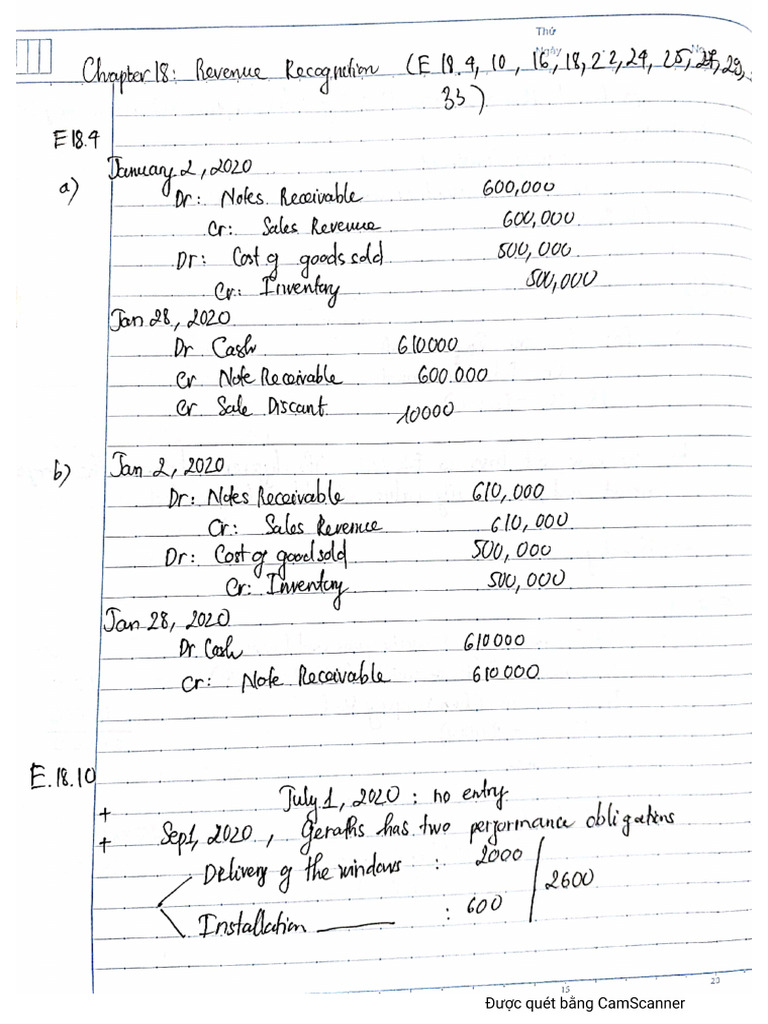 Thứ
Ngày No.
Chapter 18: Revenue Recognition (E 18.4, 10, 16, 18, 22, 24, 25, 29,
33)
E 18.4
a)
January 2, 2020
Dr: Notes Receivable 600,000
Cr: Sales Revenue 600,000
Dr: Cost of goods sold 500,000
Cr: Inventory 500,000
Jan 28, 2020
Dr Cash 610000
Cr Note Receivable 600.000
Cr Sale Discant 10000
b) Jan 2, 2020
Dr: Notes Receivable 610,000
Cr: Sales Revenue 610,000
Dr: Cost of good sold 500,000
Cr: Inventory 500,000
Jan 28, 2020
Dr. Cash 610000
Cr: Note Receivable 610.000
E.18.10
+ July 1, 2020 : no entry
+ Sep1, 2020, Geraths has two performance obligations
Delivery of the windows : 2000
2600
Installation : 600
15 20
Được quét bằng CamScanner